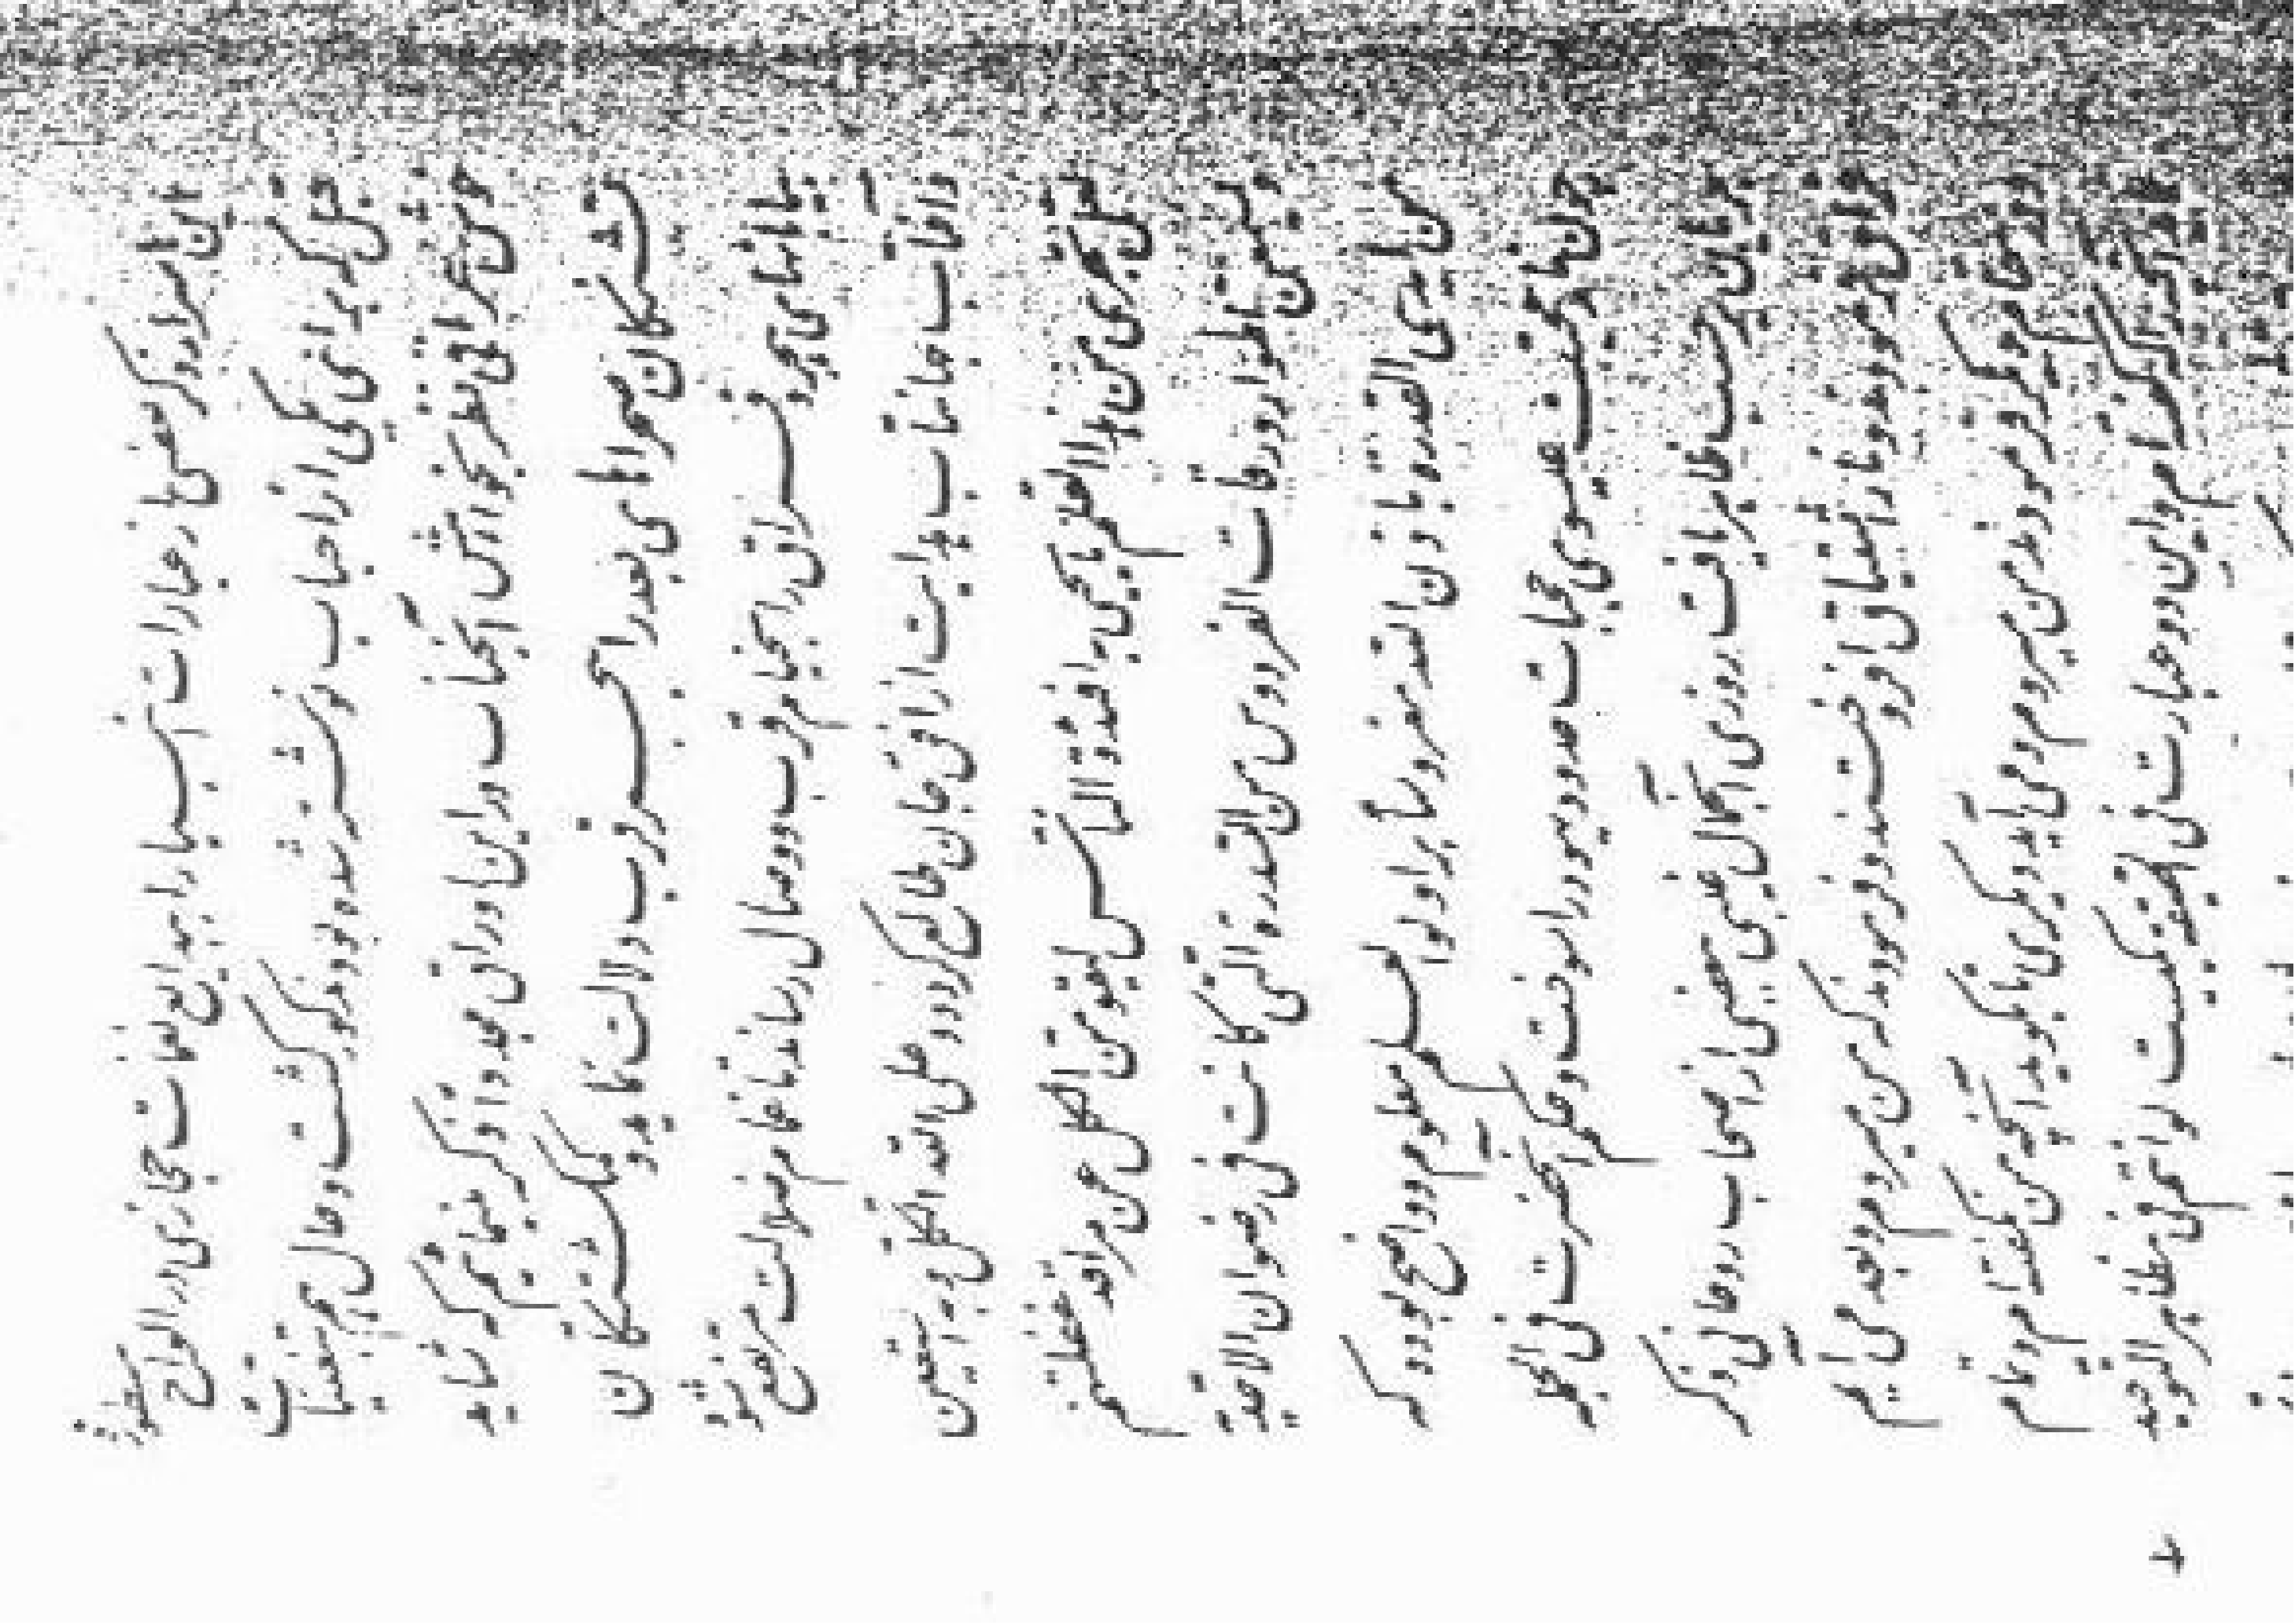 این اسرار ذکر بعضی از عبارات انبیا را ببدایع نغمات حجازی در الواح مسطورۀ
قبل که برای یکی از احباب نوشته شده بود مذکور گشت و حال هم بتغنیات
خوش عراقی نظر بخواهش آنجناب در این اوراق مجددا ذکر مینمائیم که شاید
تشنگان صحراهای بعد را ببحر قرب دلالت نماید و گمگشتگان
بیابانهای هجر و فراق را بخیام قرب و وصال رساند تا غمام ضلالت مرتفع شود
و آفتاب جهانتاب هدایت از افق جان طالع گردد و علی الله اتکل و به استعین
لعل یجری من هذا القلم ما یحیی به افئدة الناس لیقومن الکل عن مراقد غفلتهم
و یسمعن اطوار ورقات الفردوس من السدرة التی کانت فی رضوان الاحدیة
من ایدی القدرة باذن الله مغروسا بر اولوا العلم معلوم و واضح بوده که
چون نار محبت عیسوی حجبات حدود یهود را سوخت و حکم آنحضرت فی الجمله
جریان بر حسب ظاهر یافت روزی آنجمال غیبی ببعضی از اصحاب روحانی ذکر
فراق فرمودند و نار اشتیاق افروختند و فرمودند که من میروم و بعد می آیم
و در مقام دیگر فرمودند من میروم و می آید دیگری تا بگوید آنچه من نگفته ام و تمام
نماید آنچه را که گفته ام و این دو عبارت فی الحقیقه یکیست لو انتم فی مظاهر التوحید